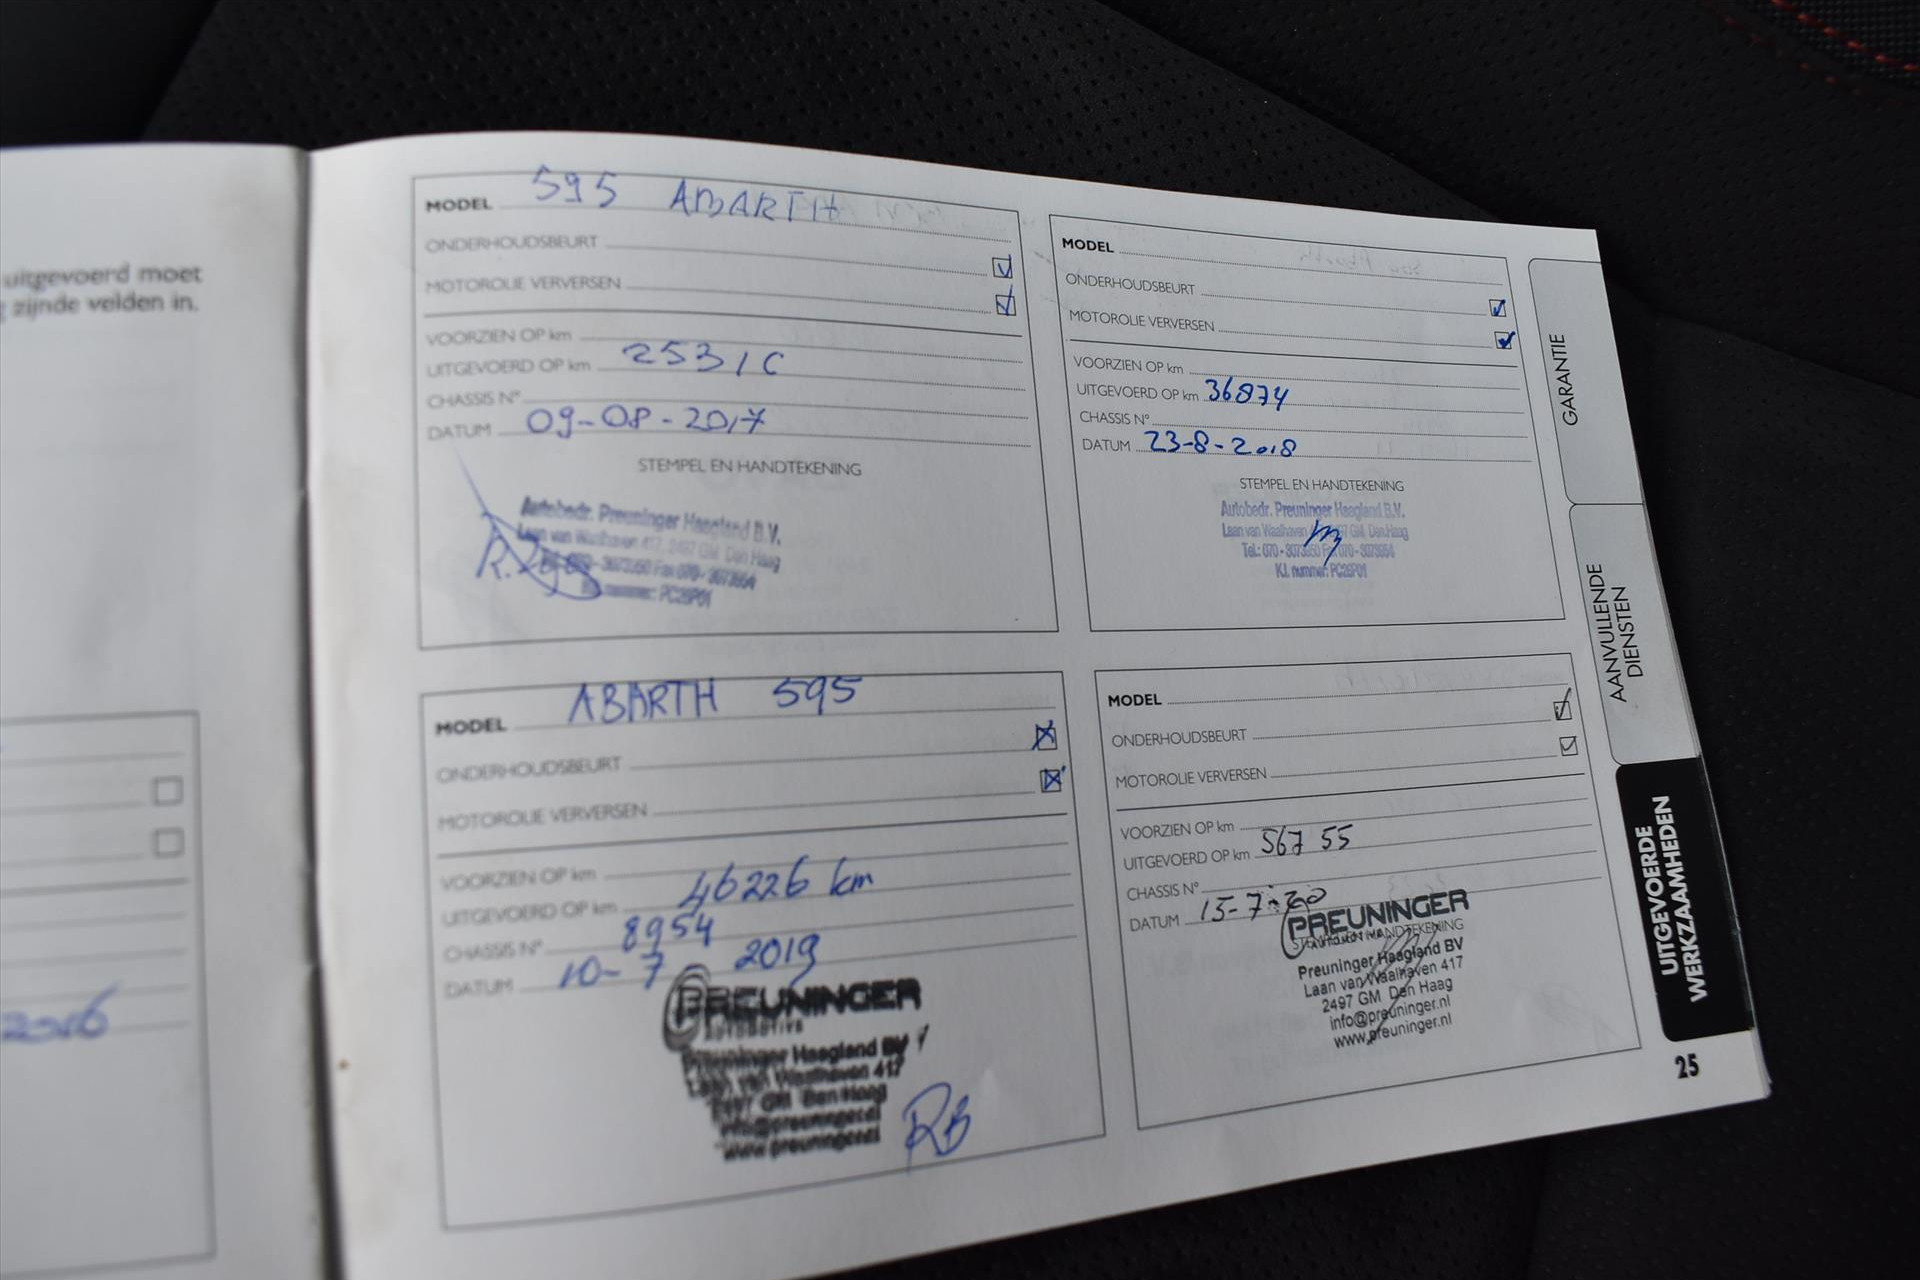 uitgevoerd moet
zijnde velden in.
2016
MODEL 595 ABARTH
ONDERHOUDSBEURT
MOTOROLIE VERVERSEN
VOORZIEN OP km
UITGEVOERD OP km 25310
CHASSIS N°
DATUM 09-08-2017
STEMPEL EN HANDTEKENING
Autobedr. Preuninger Haagland B.V.
Laan van Waalhaven 417, 2497 GM Den Haag
Tel.: 070 - 3073550 Fax 070 - 3073654
K.I. nummer: PC26P01
MODEL
ONDERHOUDSBEURT
MOTOROLIE VERVERSEN
VOORZIEN OP km
UITGEVOERD OP km 36874
CHASSIS N°
DATUM 23-8-2018
STEMPEL EN HANDTEKENING
Autobedr. Preuninger Haagland B.V.
Laan van Waalhaven GM Den Haag
Tel.: 070 - 070 - 3073654
K.I. nummer: PC26P01
MODEL ABARTH 595
ONDERHOUDSBEURT
MOTOROLIE VERVERSEN
VOORZIEN OP km
UITGEVOERD OP km 46226 km
CHASSIS N° 8954
DATUM 10-7 2019
PREUNINGER
AUTOMOTIVE
Preuninger Haagland BV
Laan van Waalhaven 417
2497 GM Den Haag
info@preuninger.nl
www.preuninger.nl
RB
MODEL
ONDERHOUDSBEURT
MOTOROLIE VERVERSEN
VOORZIEN OP km
UITGEVOERD OP km 56755
CHASSIS N°
DATUM 15-7-20
PREUNINGER
STEMPEL EN HANDTEKENING
Preuninger Haagland BV
Laan van Waalhaven 417
2497 GM Den Haag
info@preuninger.nl
www.preuninger.nl
GARANTIE
AANVULLENDE
DIENSTEN
UITGEVOERDE
WERKZAAMHEDEN
25